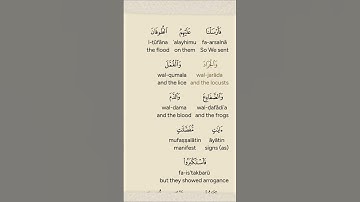 فَأَرْسَلْنَا عَلَيْهِمُ ٱلطُّوفَانَ
fa-arsalnā ʿalayhimu l-ṭūfāna
So We sent on them the flood
وَٱلْجَرَادَ وَٱلْقُمَّلَ
wal-jarāda wal-qumala
and the locusts and the lice
وَٱلضَّفَادِعَ وَٱلدَّمَ
wal-ḍafādiʿa wal-dama
and the frogs and the blood
ءَايَٰتٍۢ مُّفَصَّلَٰتٍۢ
āyātin mufaṣṣalātin
signs (as) manifest
فَٱسْتَكْبَرُوا۟
fa-is'takbarū
but they showed arrogance